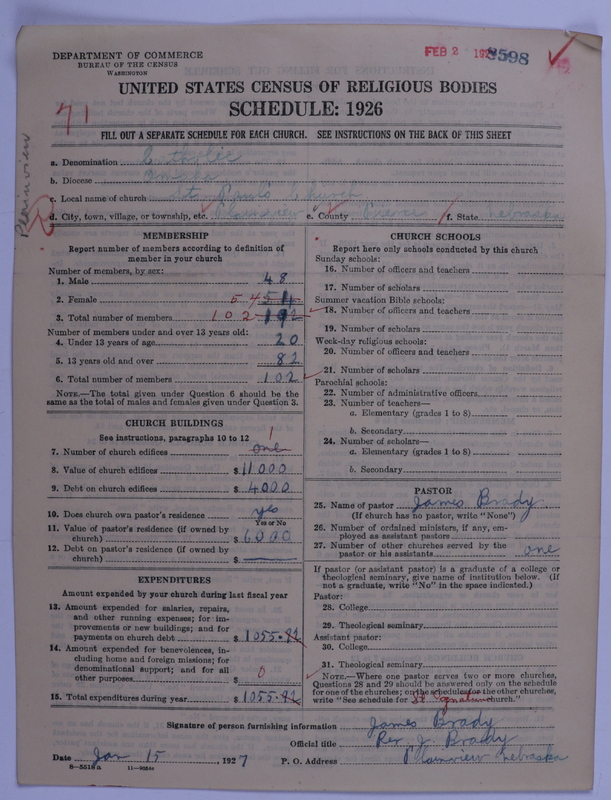 DEPARTMENT OF COMMERCE
BUREAU OF THE CENSUS
WASHINGTON
FEB 2 192
8598
UNITED STATES CENSUS OF RELIGIOUS BODIES
SCHEDULE: 1926
71
FILL OUT A SEPARATE SCHEDULE FOR EACH CHURCH. SEE INSTRUCTIONS ON THE BACK OF THIS SHEET
Plainview
a. Denomination Catholic
b. Diocese Omaha
c. Local name of church St. Paul's Church
d. City, town, village, or township, etc. Plainview e. County Pierce f. State Nebraska
MEMBERSHIP
Report number of members according to definition of
member in your church
Number of members, by sex:
1. Male 48
2. Female 54 54
3. Total number of members 102 192
Number of members under and over 13 years old:
4. Under 13 years of age 20
5. 13 years old and over 82
6. Total number of members 102
NOTE.—The total given under Question 6 should be the
same as the total of males and females given under Question 3.
CHURCH BUILDINGS
See instructions, paragraphs 10 to 12
7. Number of church edifices one 1
8. Value of church edifices $ 11000
9. Debt on church edifices $ 4000
10. Does church own pastor's residence yes
Yes or No
11. Value of pastor's residence (if owned by
church) $ 6000
12. Debt on pastor's residence (if owned by
church) $
EXPENDITURES
Amount expended by your church during last fiscal year
13. Amount expended for salaries, repairs,
and other running expenses; for im-
provements or new buildings; and for
payments on church debt $ 1055.82
14. Amount expended for benevolences, in-
cluding home and foreign missions; for
denominational support; and for all
other purposes $ 0
15. Total expenditures during year $ 1055.82
CHURCH SCHOOLS
Report here only schools conducted by this church
Sunday schools:
16. Number of officers and teachers
17. Number of scholars
Summer vacation Bible schools:
18. Number of officers and teachers
19. Number of scholars
Week-day religious schools:
20. Number of officers and teachers
21. Number of scholars
Parochial schools:
22. Number of administrative officers
23. Number of teachers—
a. Elementary (grades 1 to 8)
b. Secondary
24. Number of scholars—
a. Elementary (grades 1 to 8)
b. Secondary
PASTOR
25. Name of pastor James Brady
(If church has no pastor, write "None")
26. Number of ordained ministers, if any, em-
ployed as assistant pastors
27. Number of other churches served by the
pastor or his assistants one
If pastor (or assistant pastor) is a graduate of a college or
theological seminary, give name of institution below. (If
not a graduate, write "No" in the space indicated.)
Pastor:
28. College
29. Theological seminary
Assistant pastor:
30. College
31. Theological seminary
NOTE.—Where one pastor serves two or more churches,
Questions 28 and 29 should be answered only on the schedule
for one of the churches; on the schedules for the other churches,
write "See schedule for St Ignatius church."
Signature of person furnishing information James Brady
Official title Rev J Brady
Date Jan 15, 1927 P. O. Address Plainview Nebraska
8—5518a 11—9386